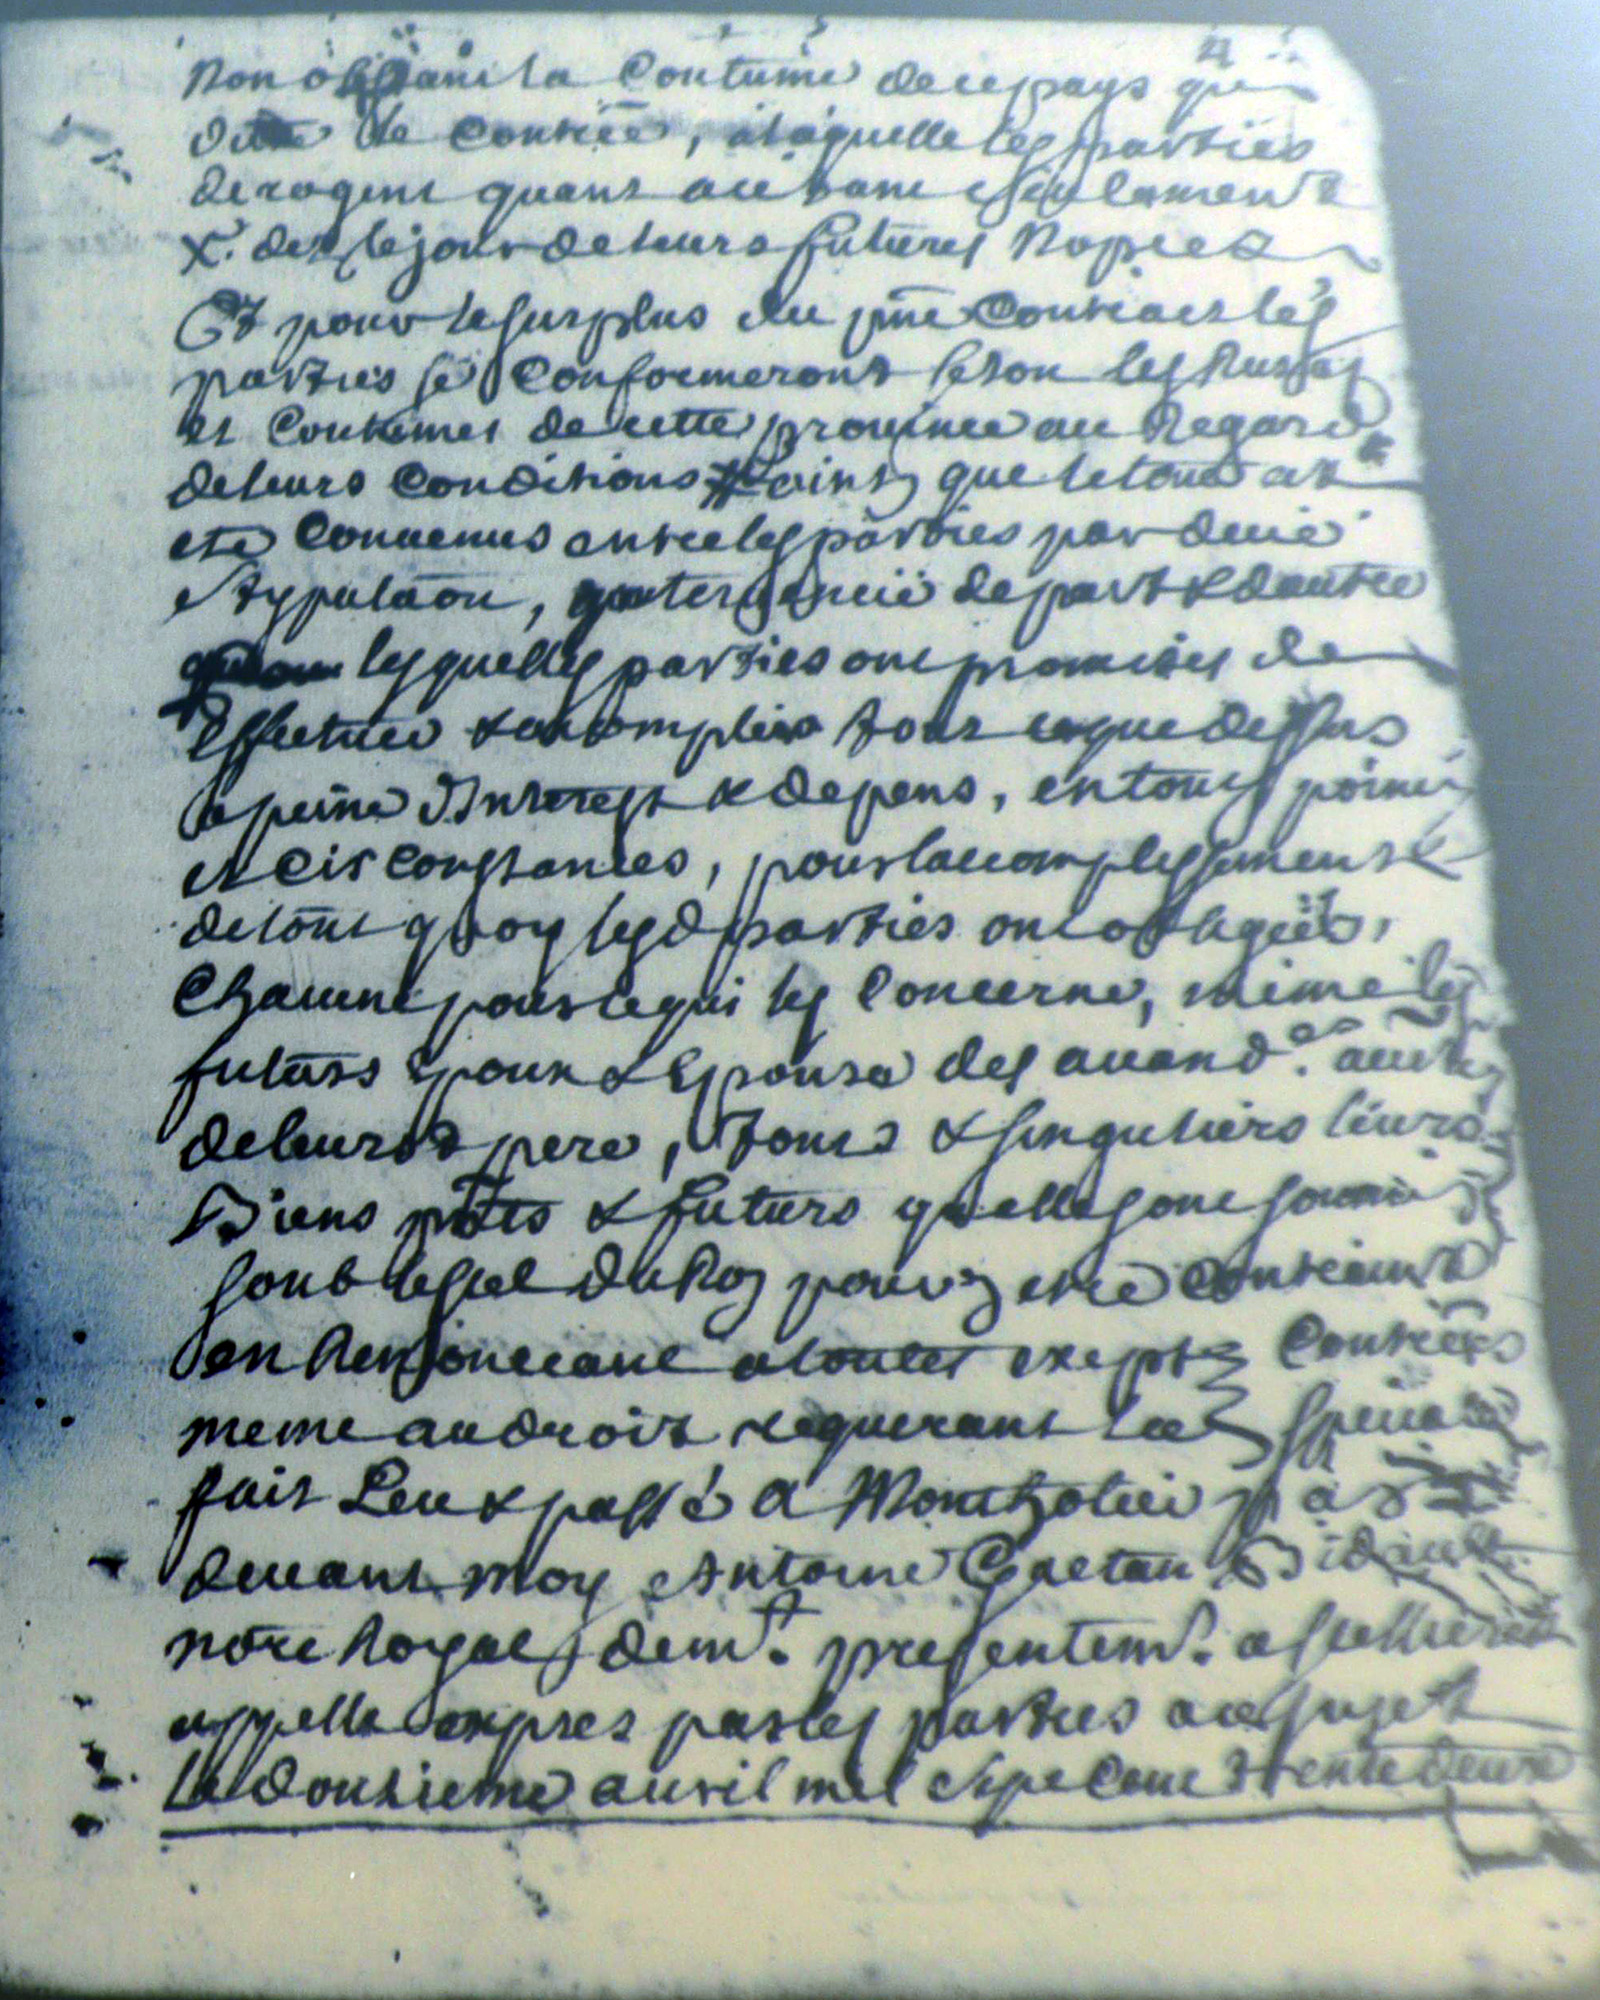 Non obstant la Coutume de ce pays qui
dit le Contrée, a laquelle les parties
derogent quant a ce dam seulement
X. dez le jour de leurs futures Nopces
Et pour le surplus du pñt Contract les
parties se Conformeront selon les husages
et Coutumes de cette province au Regard
de leurs Conditions &ainsy que le tout at
eté Convenus entre les parties par deüe
stypulaõn, de part & dautre
lesquelles parties ont promises de
Effectuer & accomplir tout ce que dessus
a peine d'Interest & depens, en tous points
et cirConstances, pour laccomplissement
de tout quoy lesd parties ont obligéës,
Chacune pour ce qui les Concerne, meme les
futurs Epoux & Epouse des auand. authes
de leursd pere, tous & singuliers leurs
Biens pñts & futurs quelles ont soumis
soub le scel du Roy pour y etre Contraint
en Renonceant a toutes exeptz Contres
meme au droit requerant la speciale
fait Leu & passé a Montholier par
devant moy Antoine Gaetan Bidault
notre Royal demt. presentemt. a Sellieres
appellé expres par les parties a ce sujet
Le douzieme auril mil sept Cent trente deux